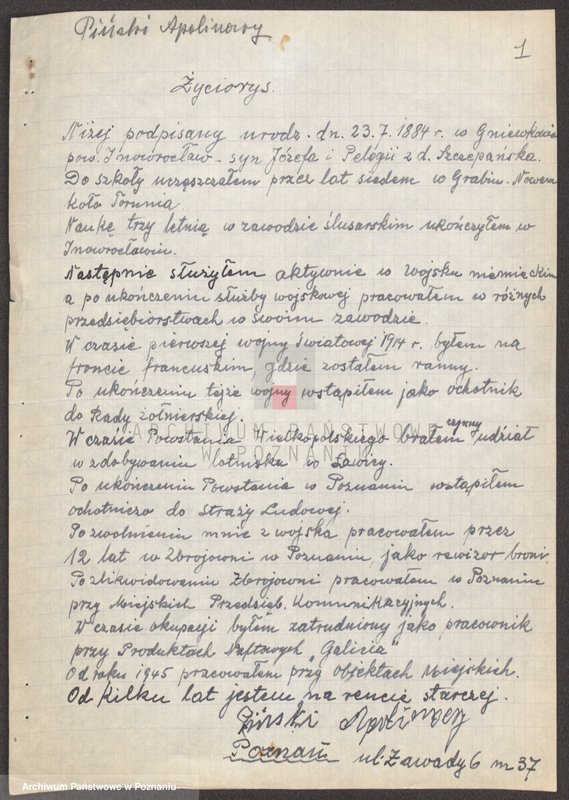 Piński Apolinary
1
Życiorys.
Niżej podpisany urodz. dn. 23.7.1884 r. w Gniewkowie
pow. Inowrocław - syn Józefa i Pelagii z d. Szczepańska.
Do szkoły uczęszczałem przez lat siedem w Grabiu-Nowem
koło Torunia.
Naukę trzy letnią w zawodzie ślusarskim ukończyłem w
Inowrocławiu.
Następnie służyłem aktywnie w Wojsku niemieckim
a po ukończeniu służby wojskowej pracowałem w różnych
przedsiębiorstwach w swoim zawodzie.
W czasie pierwszej wojny światowej 1914 r. byłem na
froncie francuskim, gdzie zostałem ranny.
Po ukończeniu tejże wojny wstąpiłem jako ochotnik
do Rady żołnierskiej.
W czasie Powstania Wielkopolskiego brałem czynny udział
w zdobywaniu lotniska w Ławicy.
Po ukończeniu Powstania w Poznaniu wstąpiłem
ochotniczo do Straży Ludowej.
Po zwolnieniu mnie z wojska pracowałem przez
12 lat w Zbrojowni w Poznaniu, jako rewizor broni.
Po zlikwidowaniu Zbrojowni pracowałem w Poznaniu
przy Miejskich Przedsięb. Komunikacyjnych.
W czasie okupacji byłem zatrudniony jako pracownik
przy Produktach Naftowych "Galicia"
Od roku 1945 pracowałem przy objektach Miejskich.
Od kilku lat jestem na rencie starczej.
Piński Apolinary
Poznań ul. Zawady 6 m 37
ARCHIWUM PAŃSTWOWE
W POZNANIU
Archiwum Państwowe w Poznaniu